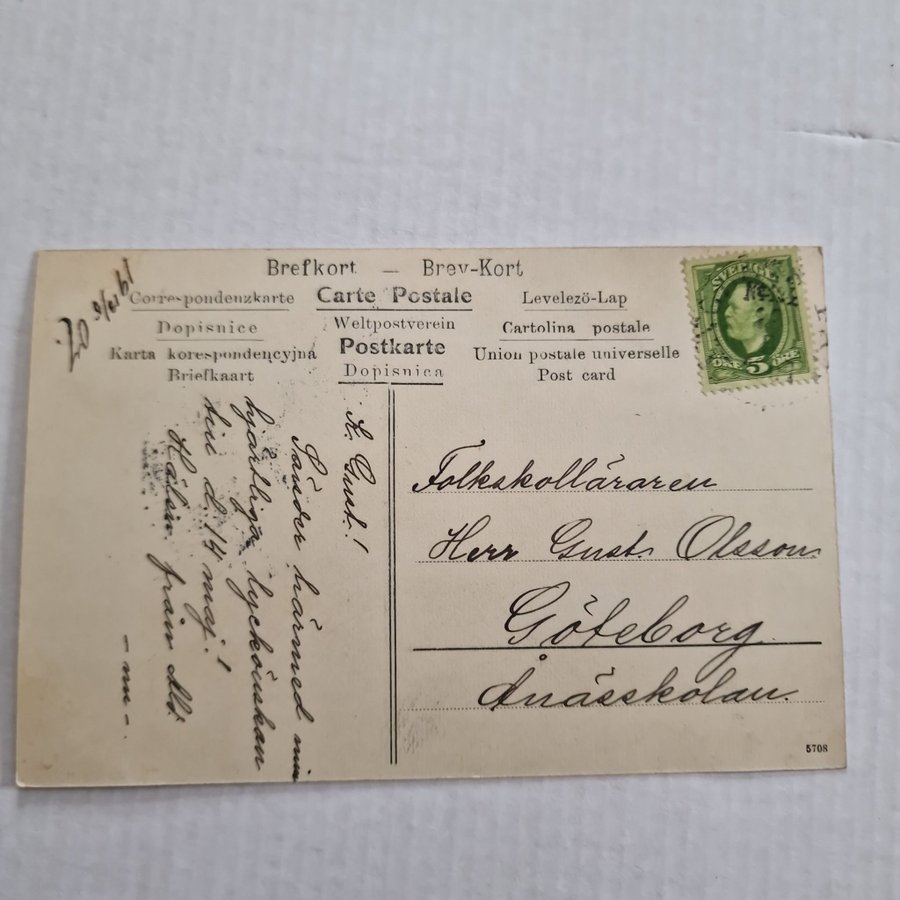 Brefkort — Brev-Kort
Correspondenzkarte Carte Postale Levelezö-Lap
Dopisnice Weltpostverein Cartolina postale
Karta korespondencyjna Postkarte Union postale universelle
Briefkaart Dopisnica Post card
SVERIGE
5
ÖRE ÖRE
K. Gust!
Sänder härmed min
hjärtliga lyckönskan
till d. 14 maj!
Hälsn. från
Folkskolläraren
Herr Gust. Olsson
Göteborg
Ånässkolan.
5708